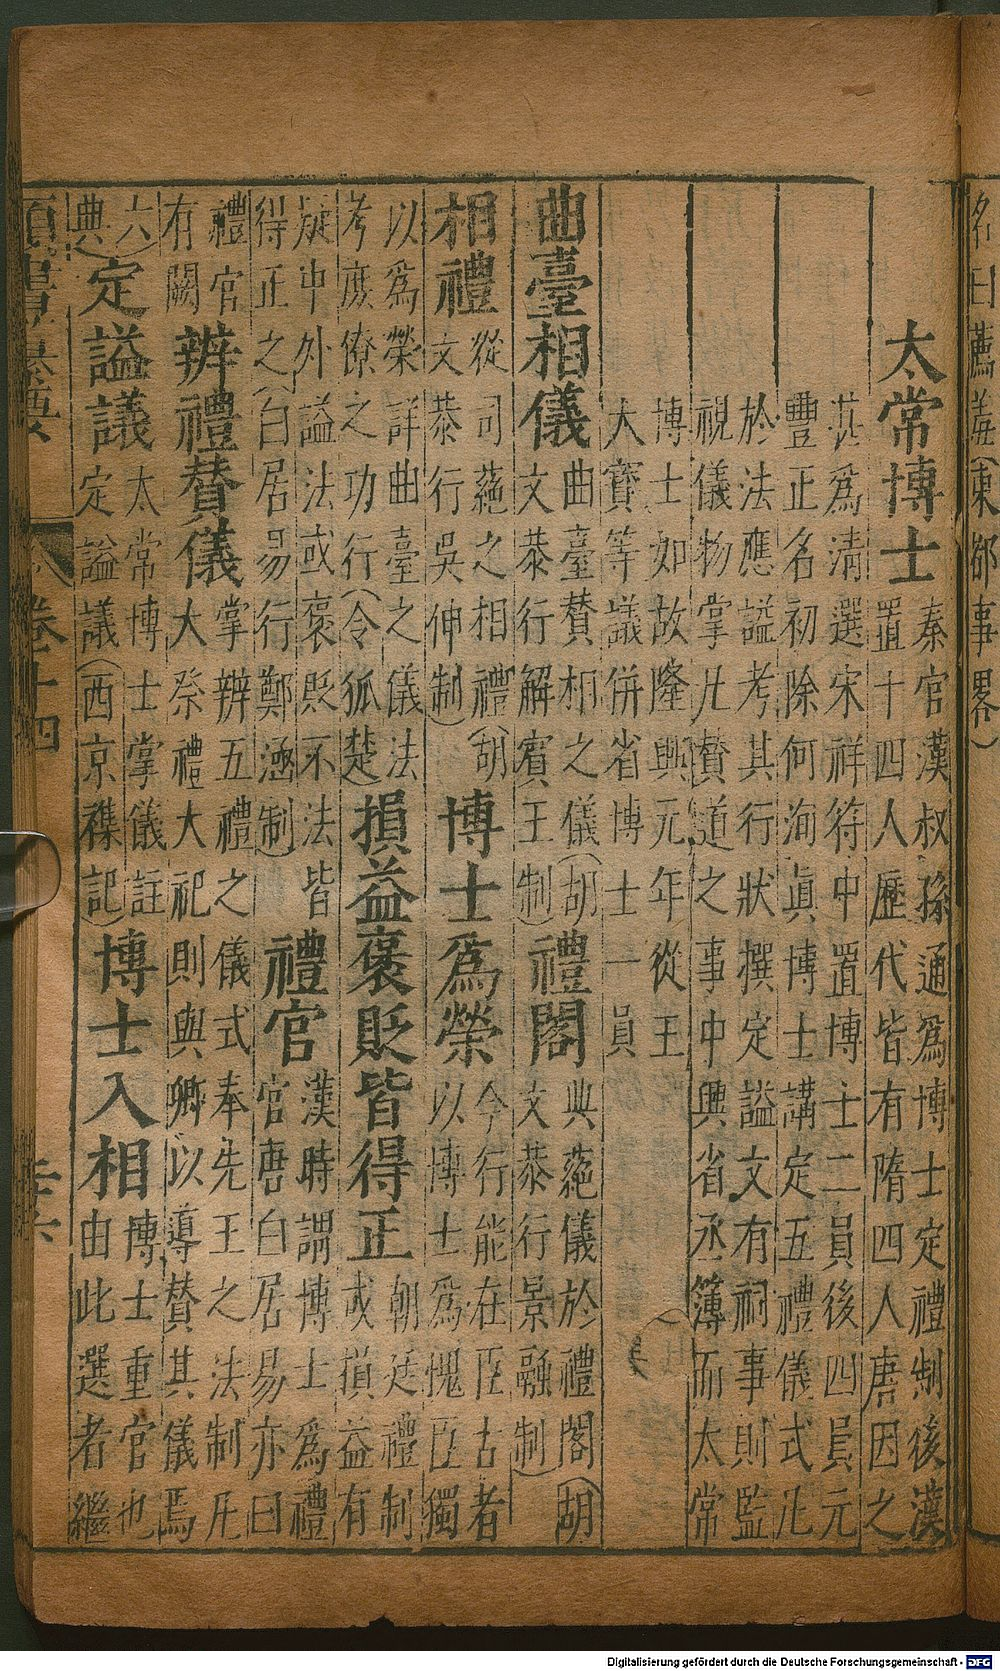 名曰薦羙(東都事畧)
太常博士 秦官漢叔孫通為博士定禮制後漢
置十四人歷代皆有隋四人唐因之
共為清選宋祥符中置博士二員後四員元
豐正名初除何洵眞博士講定五禮儀式凡
於法應謚考其行狀撰定謚文有祠事則監
視儀物掌凡贊道之事中興省丞簿而太常
博士如故隆興元年從王
大寶等議併省博士一員
曲臺相儀 曲臺贊相之儀(胡
文恭行解賓王制)
禮閣 典蕝儀於禮閣(胡
文恭行景融制)
相禮 從司蕝之相禮(胡
文恭行吳伸制)
博士為榮 今行能在臣古者
以博士為愧臣獨
以為榮詳曲臺之儀法
考庶僚之功行(令狐楚)
損益褒貶皆得正 朝廷禮制
或損益有
疑中外謚法或褒貶不法皆
得正之(白居易行鄭涵制)
禮官 漢時謂博士為禮
官唐白居易亦曰
禮官
有闕
辨禮贊儀 掌辨五禮之儀式奉先王之法制凡
大祭禮大祀則與卿以導贊其儀焉
六
典)
定謚議 太常博士掌儀註
定謚議(西京襍記)
博士入相 博士重官也
由此選者繼
類書纂要
卷十四
Digitalisierung gefördert durch die Deutsche Forschungsgemeinschaft - DFG